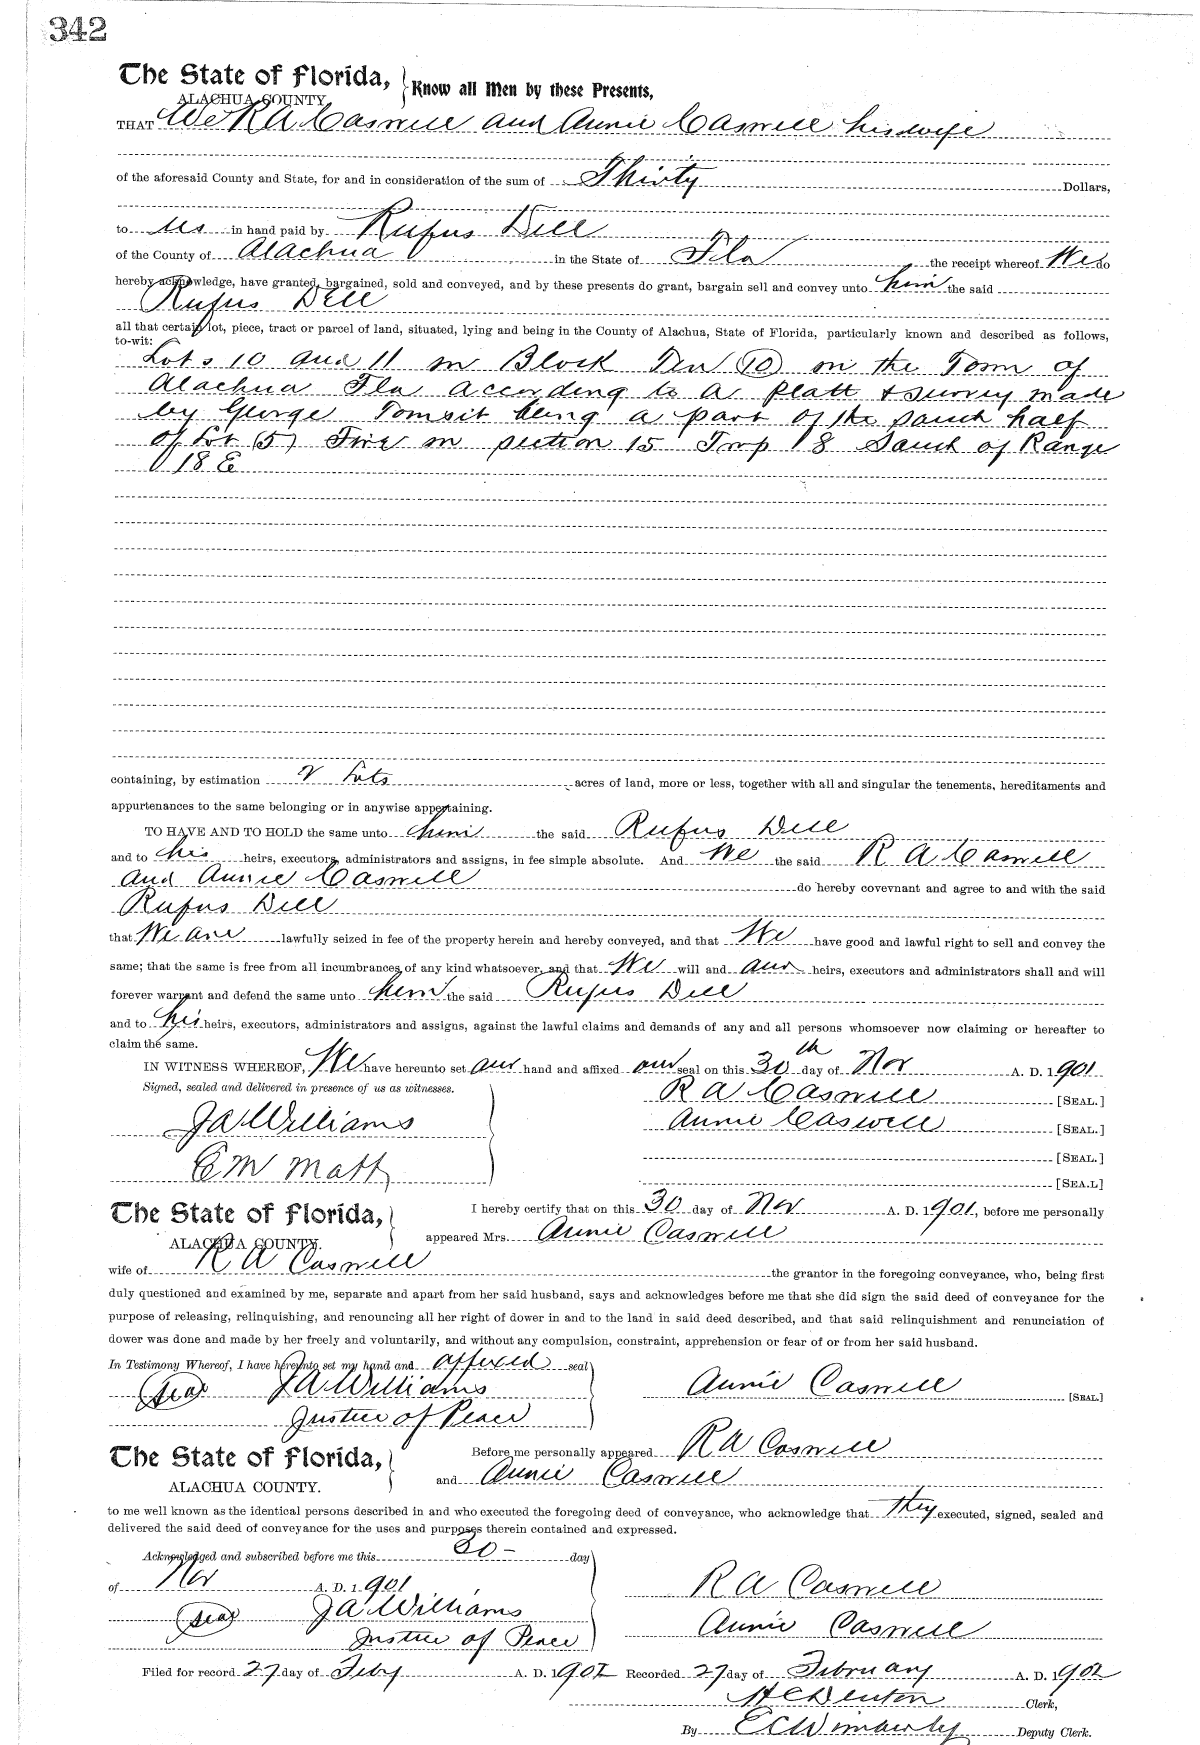 342
The State of Florida,
ALACHUA COUNTY
Know all Men by these Presents,
THAT We R A Caswell and Annie Caswell his wife
of the aforesaid County and State, for and in consideration of the sum of Thirty Dollars,
to us in hand paid by Rufus Dell
of the County of Alachua in the State of Fla the receipt whereof We do
hereby acknowledge, have granted, bargained, sold and conveyed, and by these presents do grant, bargain sell and convey unto him the said
Rufus Dell
all that certain lot, piece, tract or parcel of land, situated, lying and being in the County of Alachua, State of Florida, particularly known and described as follows,
to-wit:
Lots 10 and 11 in Block Ten (10) in the Town of
Alachua Fla according to a platt & survey made
by George being a part of the South half
of Lot (5) Five in section 15 Twp 8 South of Range
18 E
containing, by estimation 2 Lots acres of land, more or less, together with all and singular the tenements, hereditaments and
appurtenances to the same belonging or in anywise appertaining.
TO HAVE AND TO HOLD the same unto him the said Rufus Dell
and to his heirs, executors, administrators and assigns, in fee simple absolute. And We the said R A Caswell
and Annie Caswell do hereby covevnant and agree to and with the said
Rufus Dell
that We are lawfully seized in fee of the property herein and hereby conveyed, and that We have good and lawful right to sell and convey the
same; that the same is free from all incumbrances of any kind whatsoever, and that We will and our heirs, executors and administrators shall and will
forever warrant and defend the same unto him the said Rufus Dell
and to his heirs, executors, administrators and assigns, against the lawful claims and demands of any and all persons whomsoever now claiming or hereafter to
claim the same.
IN WITNESS WHEREOF, We have hereunto set our hand and affixed our seal on this 30th day of Nov A. D. 1901
Signed, sealed and delivered in presence of us as witnesses.
R A Caswell [SEAL.]
J A Williams
Annie Caswell [SEAL.]
[SEAL.]
E M
[SEA.L]
The State of Florida,
ALACHUA COUNTY.
I hereby certify that on this 30 day of Nov A. D. 1901, before me personally
appeared Mrs. Annie Caswell
wife of R A Caswell the grantor in the foregoing conveyance, who, being first
duly questioned and examined by me, separate and apart from her said husband, says and acknowledges before me that she did sign the said deed of conveyance for the
purpose of releasing, relinquishing, and renouncing all her right of dower in and to the land in said deed described, and that said relinquishment and renunciation of
dower was done and made by her freely and voluntarily, and without any compulsion, constraint, apprehension or fear of or from her said husband.
In Testimony Whereof, I have hereunto set my hand and affixed seal
(Seal) J A Williams
Annie Caswell [SEAL.]
Justice of Peace
The State of Florida,
ALACHUA COUNTY.
Before me personally appeared R A Caswell
and Annie Caswell
to me well known as the identical persons described in and who executed the foregoing deed of conveyance, who acknowledge that they executed, signed, sealed and
delivered the said deed of conveyance for the uses and purposes therein contained and expressed.
Acknowledged and subscribed before me this 30- day
of Nov A. D. 1901
R A Caswell
(Seal) J A Williams
Annie Caswell
Justice of Peace
Filed for record 27 day of Feby A. D. 1902 Recorded 27 day of February A. D. 1902
H C Denton Clerk,
By E C Wimberly Deputy Clerk.